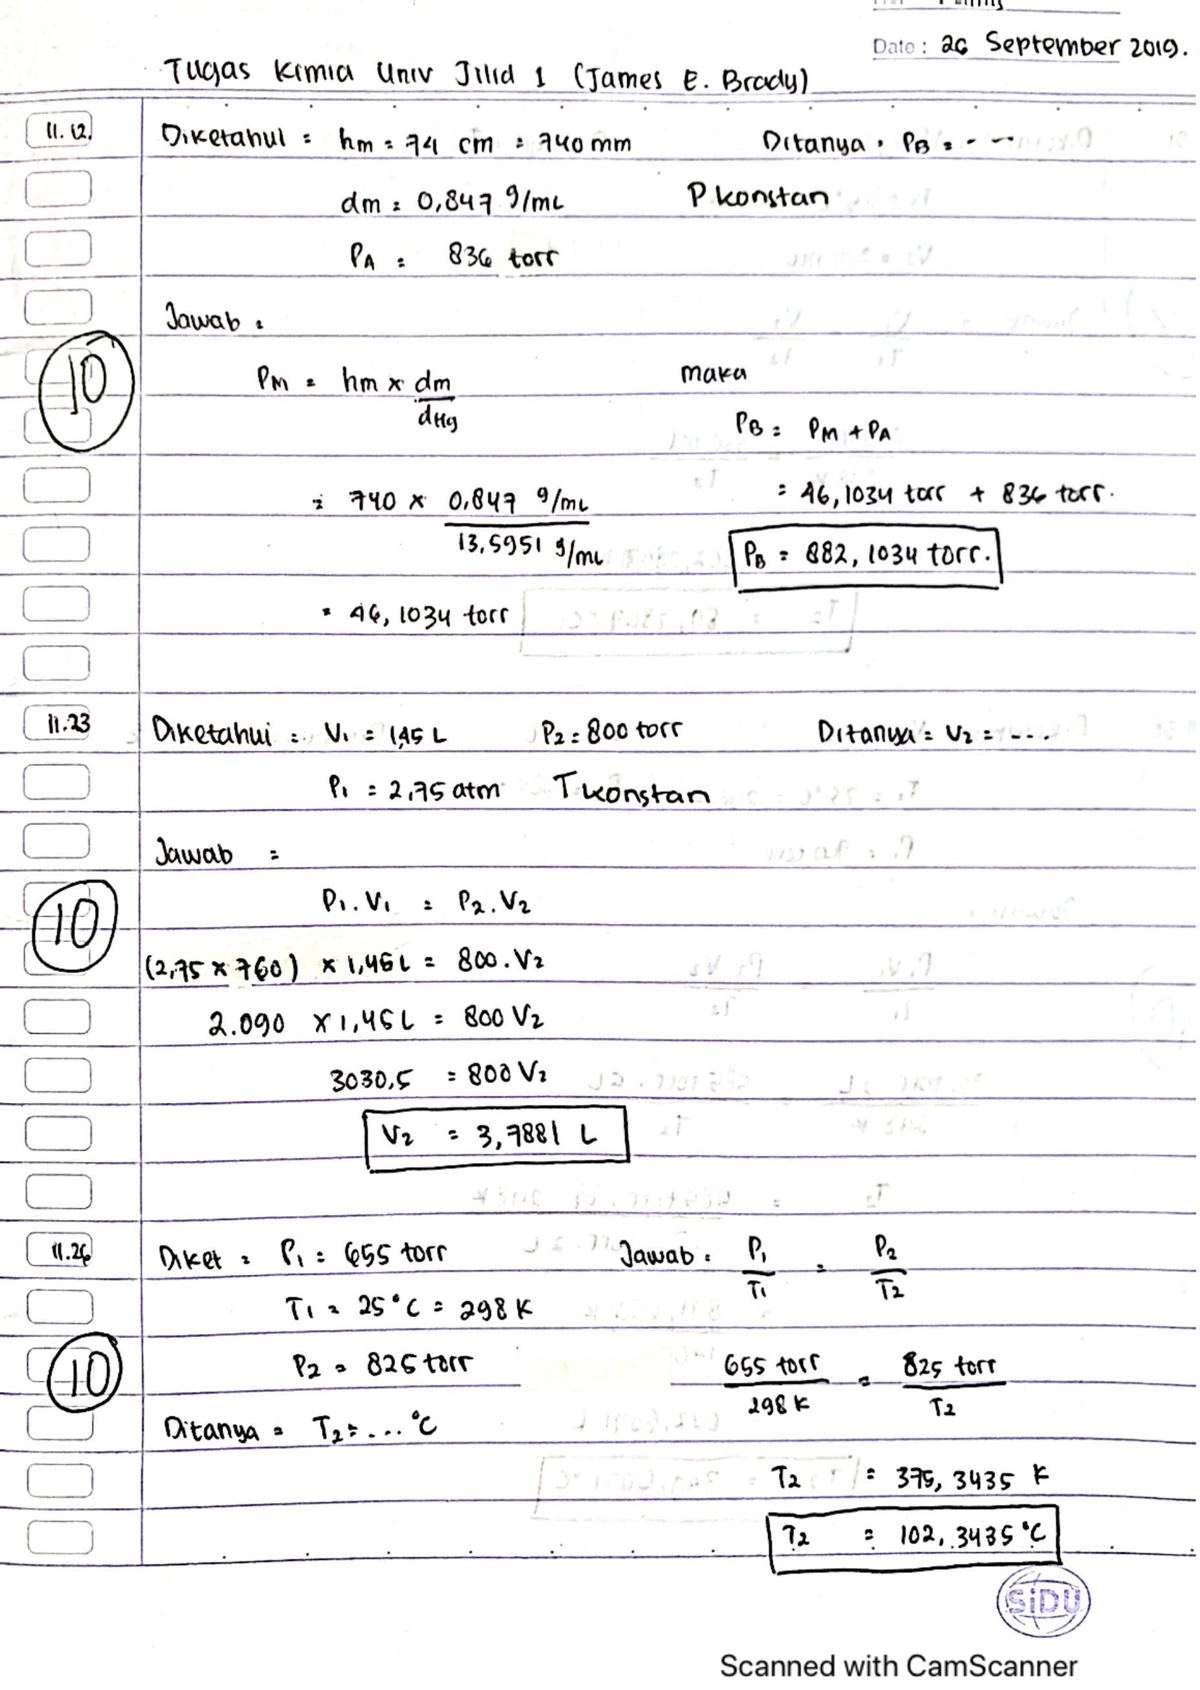 Date : 26 September 2019.
Tugas Kimia Univ Jilid 1 (James E. Brady)
11.12. Diketahui = hm = 74 cm = 740 mm Ditanya = PB = ...
dm = 0,847 g/mL P konstan
PA = 836 torr
Jawab =
10
PM = hm x dm/dHg maka
PB = PM + PA
= 740 x 0,847 g/mL / 13,5951 g/mL = 46,1034 torr + 836 torr.
PB = 882,1034 torr.
= 46,1034 torr
11.23 Diketahui = V1 = 1,45 L P2 = 800 torr Ditanya = V2 = ....
P1 = 2,75 atm T konstan
Jawab =
10
P1.V1 = P2.V2
(2,75 x 760) x 1,45 L = 800.V2
2.090 x 1,45 L = 800 V2
3030,5 = 800 V2
V2 = 3,7881 L
11.26 Diket = P1 = 655 torr Jawab = P1/T1 = P2/T2
T1 = 25°C = 298 K
10
P2 = 825 torr 655 torr/298 K = 825 torr/T2
Ditanya = T2 = ... °C
T2 = 375,3435 K
T2 = 102,3435 °C
SiDU
Scanned with CamScanner